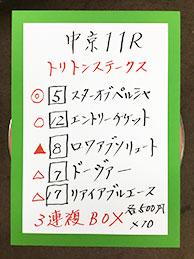 中京11R
トリトンステークス
◎ 5 スターオブペルシャ
○ 12 エントリーチケット
▲ 8 ロワアブソリュート
△ 7 ドーヴァー
△ 17 リアイアブルエース
3連複BOX 各500円
×10